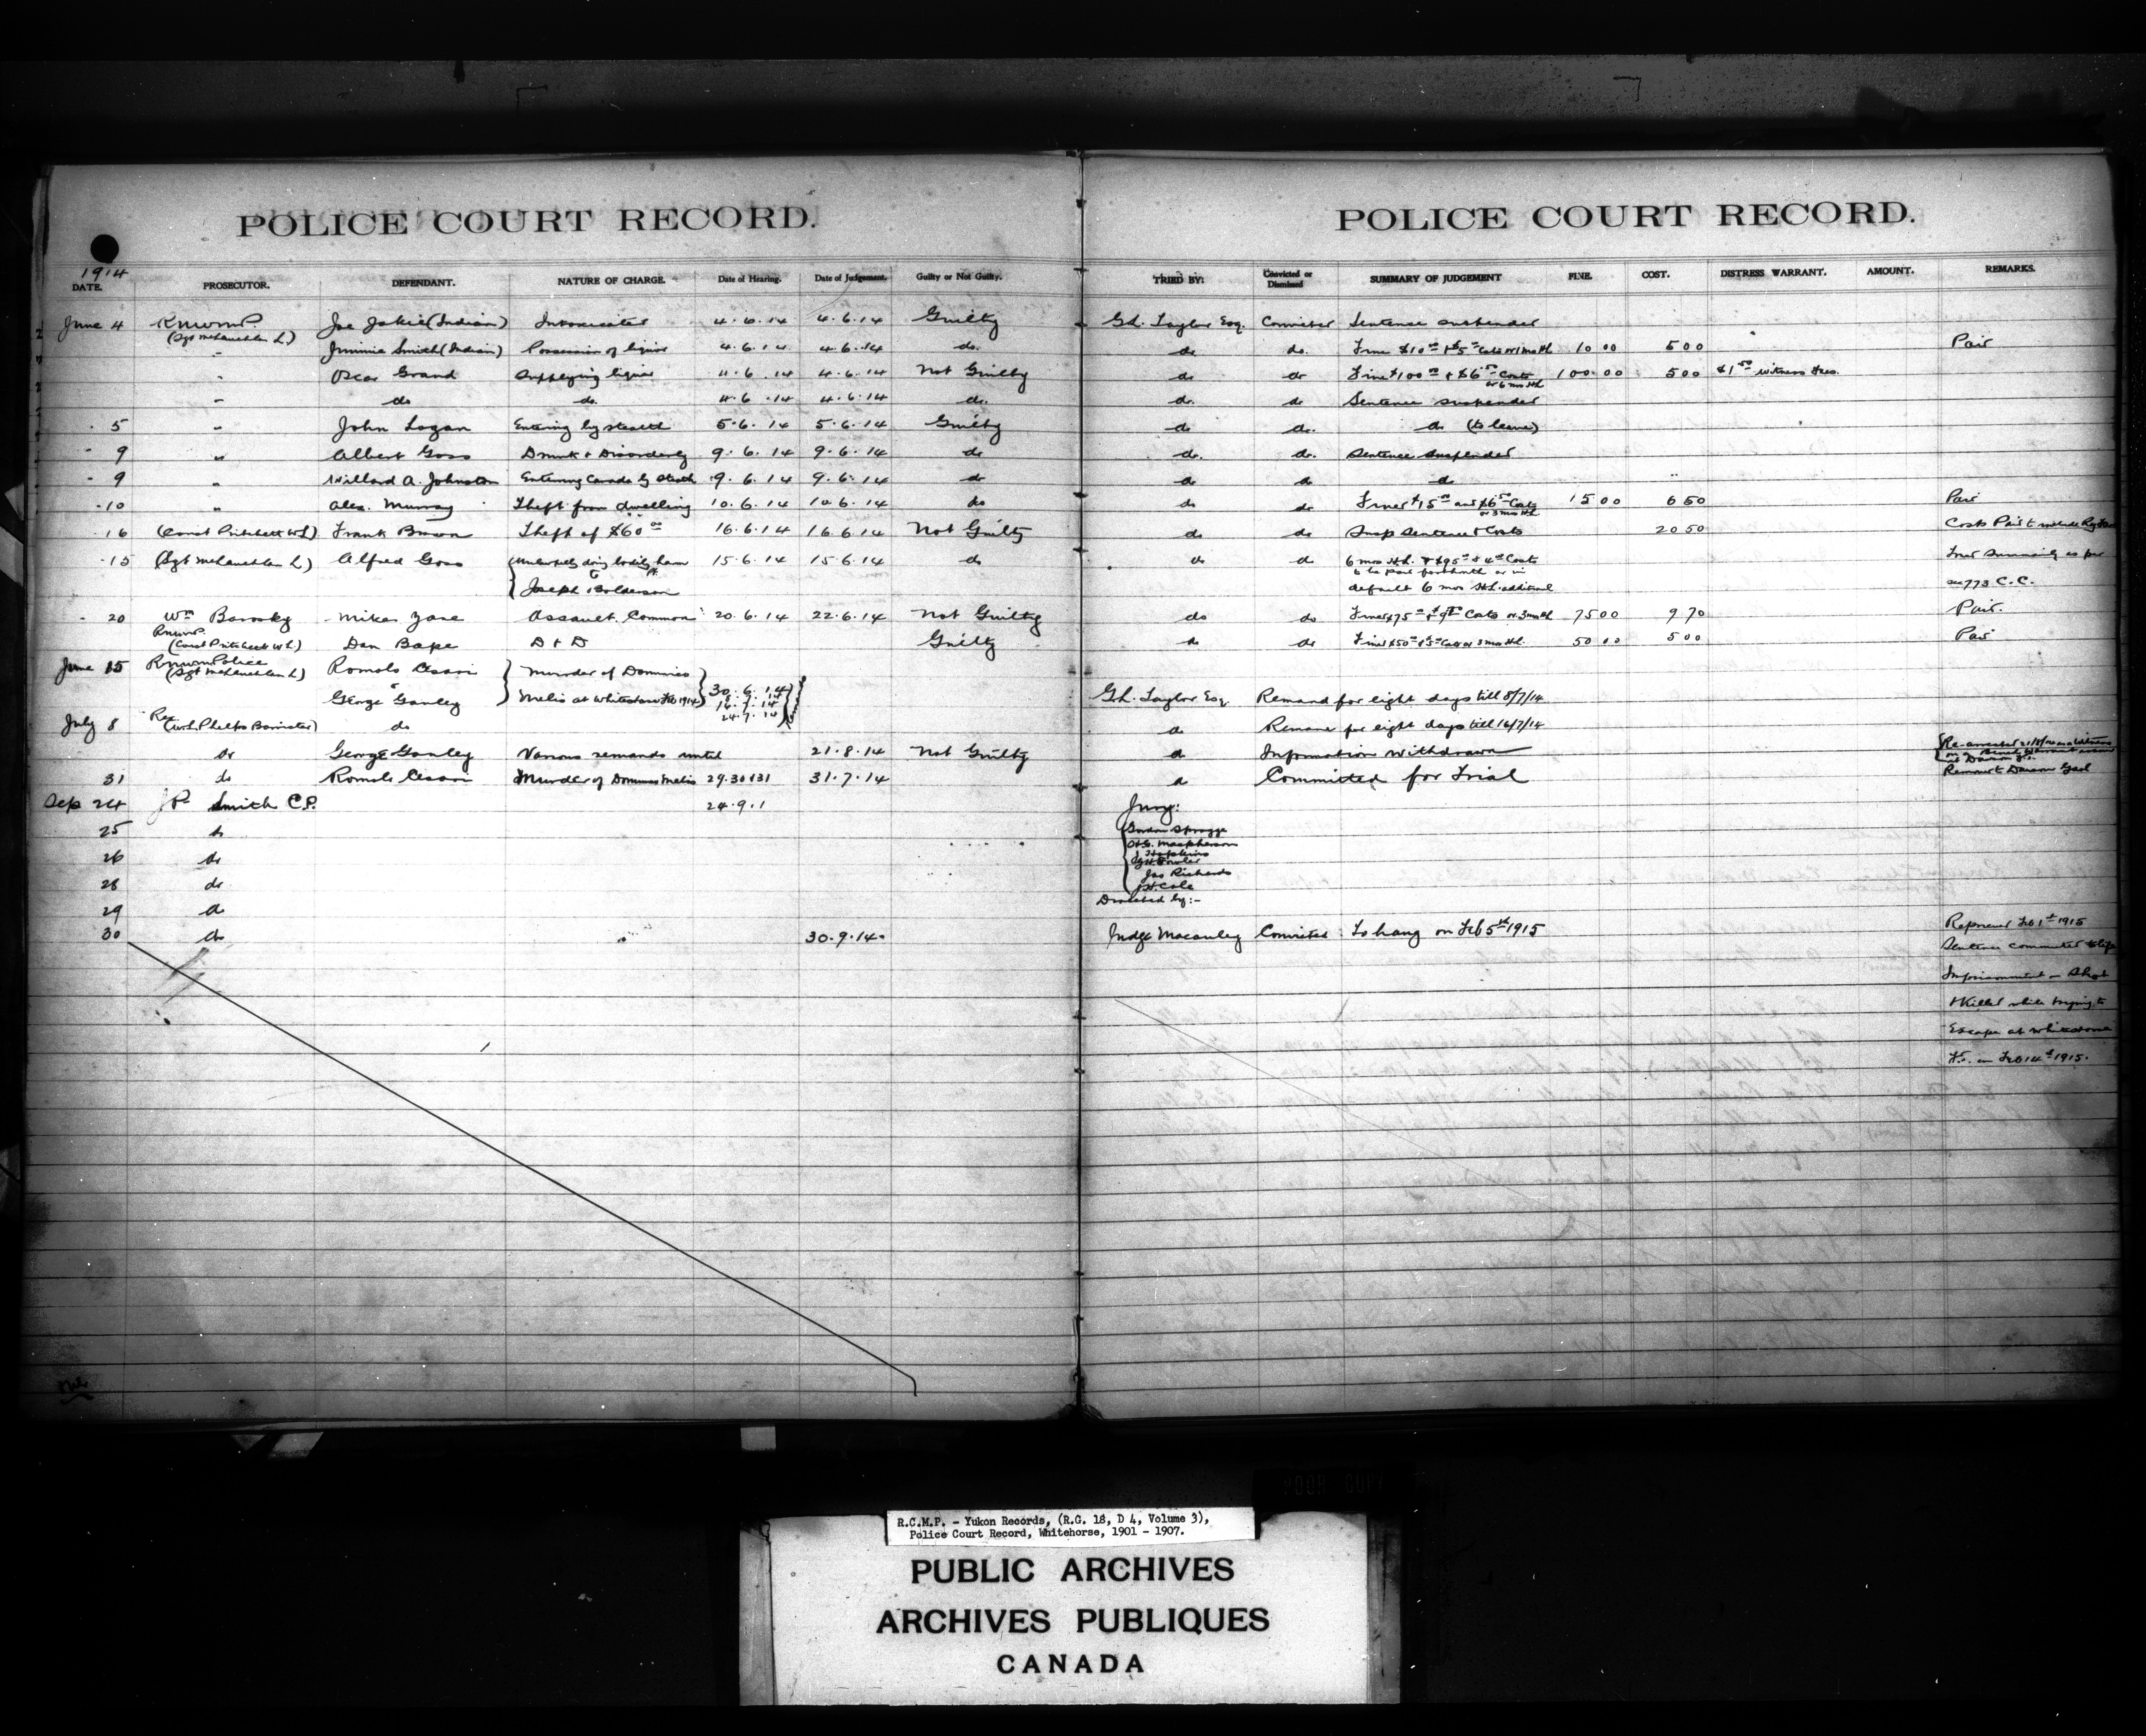 POLICE COURT RECORD.
1914
DATE. PROSECUTOR. DEFENDANT. NATURE OF CHARGE. Date of Hearing. Date of Judgement. Guilty or Not Guilty.
June 4 R.N.W.M.P. Joe Jakie (Indian) Intoxicated 4.6.14 4.6.14 Guilty
(Sgt McLauchlan L)
" Jimmie Smith (Indian) Possession of liquor 4.6.14 4.6.14 do.
" Oscar Grand Supplying liquor 4.6.14 4.6.14 Not Guilty
" do do. 4.6.14 4.6.14 do.
" 5 " John Logan Entering by stealth 5.6.14 5.6.14 Guilty
" 9 " Albert Goss Drunk & Disorderly 9.6.14 9.6.14 do
" 9 " Willard A. Johnston Entering Canada by stealth 9.6.14 9.6.14 do
" 10 " Alex. Murray Theft from dwelling 10.6.14 10.6.14 do
" 16 (Const Pritchett W.L) Frank Brown Theft of $60 00 16.6.14 16.6.14 Not Guilty
" 15 (Sgt McLauchlan L) Alfred Goss Unlawfully doing bodily harm 15.6.14 15.6.14 do
to
Joseph
" 20 Wm Barosky Mike Zane Assault, Common 20.6.14 22.6.14 Not Guilty
R.N.W.M.P.
(Const Pritchett W.L.) Dan Bape D & D Guilty
June 15 R.N.W.M Police Romolo Cesari Murder of Dominic
(Sgt McLauchlan L)
George Ganley Melis at Whitehorse Feb 1914 30.6.14
16.7.14
24.7.14
July 8 Rex (W.L. Phelps Barrister) do
do George Ganley Various remands until 21.8.14 Not Guilty
31 do Romolo Cesari Murder of Dominic Melis 29.30 & 31 31.7.14
Sep 24 J.P. Smith C.P. 24.9.1
25 do
26 do
28 do
29 do
30 do 30.9.14.
POLICE COURT RECORD.
TRIED BY: Convicted or Dismissed SUMMARY OF JUDGEMENT FINE. COST. DISTRESS WARRANT. AMOUNT. REMARKS.
G.L. Taylor Esq. Convicted Sentence suspended
do do. Fined $10 00 & $5 00 Costs or 1 month 10 00 5 00 Paid
do do Fined $100 00 & $6 50 Costs 100.00 5 00 $1 50 witness fees.
or 6 mos HL
do. do Sentence suspended
do do. do (to leave)
do. do. Sentence suspended
do do do
do do Fined $15 00 and $6 50 Costs 15 00 6 50 Paid
or 3 mos HL
do do Susp Sentence & Costs 20 50 Costs Paid
do do 6 mos H.L. & $95 00 & 4 00 Costs Tried Summarily as per
to be paid forthwith or in
default 6 mos H.L. additional sec 773 C.C.
do do Fined $75 00 & $9 70 Costs or 3 mos HL 75 00 9 70 Paid.
do do Fined $50 00 & 5 00 Costs or 3 mos HL. 50 00 5 00 Paid
G.L. Taylor Esq. Remand for eight days till 8/7/14
do Remand for eight days till 16/7/14
do Information withdrawn Re-arrested as a witness
on a Bench Warrant issued
at Dawson Y.T.
do Committed for Trial Remand Dawson Gaol
Jury:
Gordon Spragge
H.G. Macpherson
J Hopkins
Fowler
Jas Richards
J.H. Cole
Directed by:-
Judge Macauley Convicted To hang on Feb 5th 1915 Reprieved Feb 1st 1915
Sentence commuted to life
Imprisonment - Shot
& Killed while trying to
Escape at Whitehorse
Y.T. on Feb 14th 1915.
POOR COPY
R.C.M.P. - Yukon Records, (R.G. 18, D 4, Volume 3),
Police Court Record, Whitehorse, 1901 - 1907.
PUBLIC ARCHIVES
ARCHIVES PUBLIQUES
CANADA